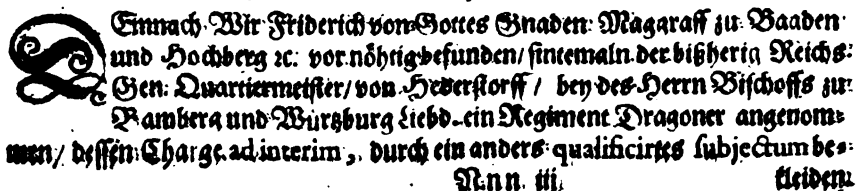 DEmnach Wir Friderich von Gottes Gnaden Magaraff zu Baaden
und Hochberg ꝛc. vor nöhtig befunden / sintemaln der bißherig Reichs-
Gen: Quartiermeister / von Hederstorff / bey des Herrn Bischoffs zu
Bamberg und Würtzburg Liebd. ein Regiment Dragoner angenom-
men / dessen Charge ad interim, durch ein anders qualificirtes subjectum be-
Nnn iii kleiden